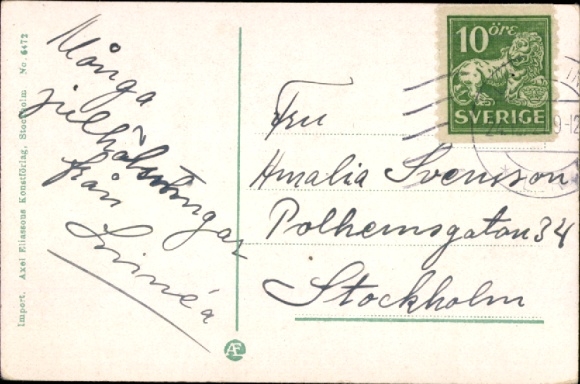 Import. Axel Eliassons Konstförlag, Stockholm No. 6472
Många
julhälsningar
från
Linnéa
10 ÖRE
SVERIGE
Fru
Amalia Svensson
Polhemsgatan 34
Stockholm
AE